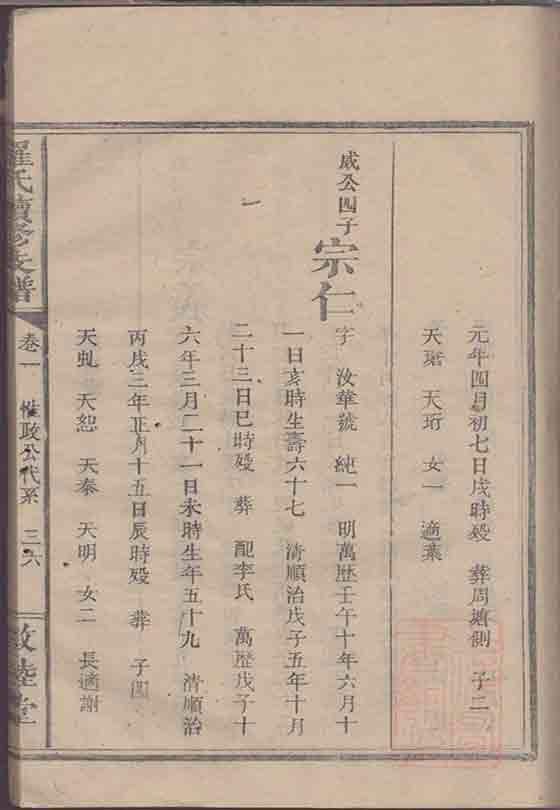 元年四月初七日戌時歿 葬周塘側 子二
天瑃 天珩 女一 適葉
威公四子 宗仁
字 汝華號 純一 明萬歷壬午十年六月十
一日亥時生壽六十七 清順治戊子五年十月
二十三日巳時歿 葬 配李氏 萬歷戊子十
六年三月二十一日未時生年五十九 清順治
丙戌三年正月十五日辰時歿 葬 子四
天虬 天恕 天秦 天明 女二 長適謝
羅氏續修支譜
卷一 惟政公代系 三六
敦睦堂